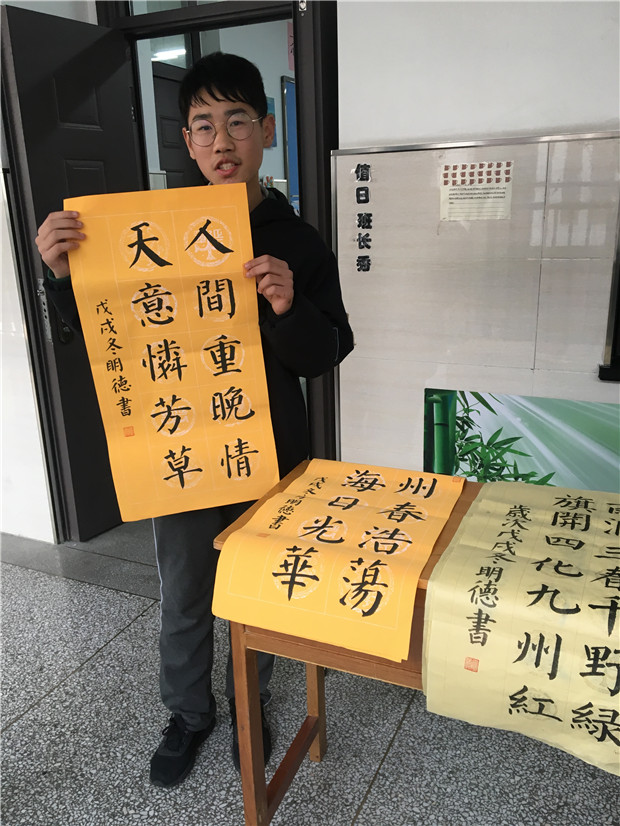 人間重晚情
天意憐芳草
戊戌冬明德書
州春浩蕩
海日光華
戊戌冬明德書
三春千野綠
旗開四化九州紅
歲次戊戌冬明德書
值日班长秀